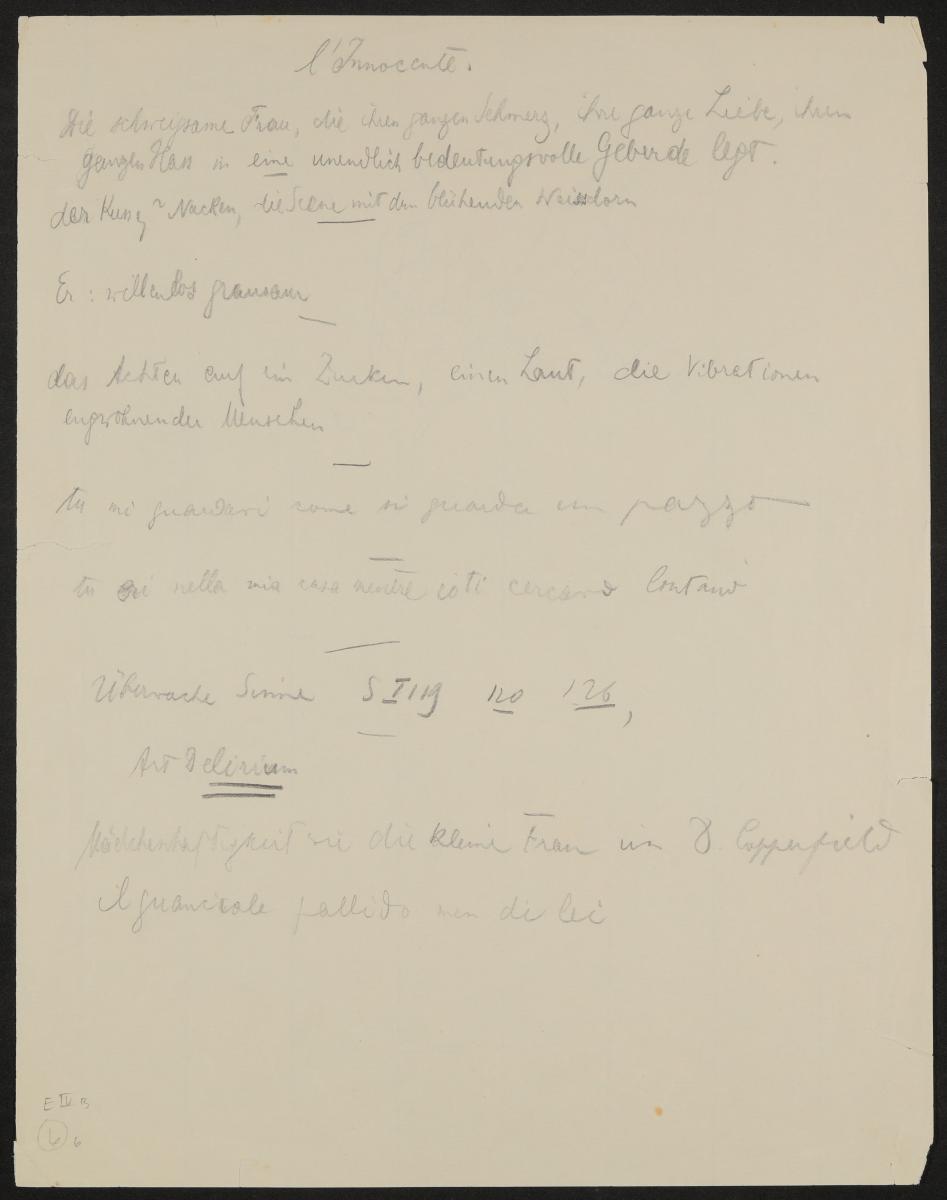 l'Innocente.
Die schweigsame Frau, die ihren ganzen Schmerz, ihre ganze Liebe, ihren
ganzen Hass in eine unendlich bedeutungsvolle Geberde legt.
der Kuss Nacken, die Scene mit dem blühenden Weissdorn
Er: willenlos grausam
das Achten auf ein Zucken, einen Laut, die Vibrationen
Menschen
tu mi guardavi come si guarda un pazzo
tu nella mia casa mentre io ti cercavo lontano
Überwache Sinne S I 119 120 126,
Art Delirium
Mädchenhaftigkeit wie die kleine Frau im D. Copperfield
il guanciale pallido men di lei
E IV B
6 6